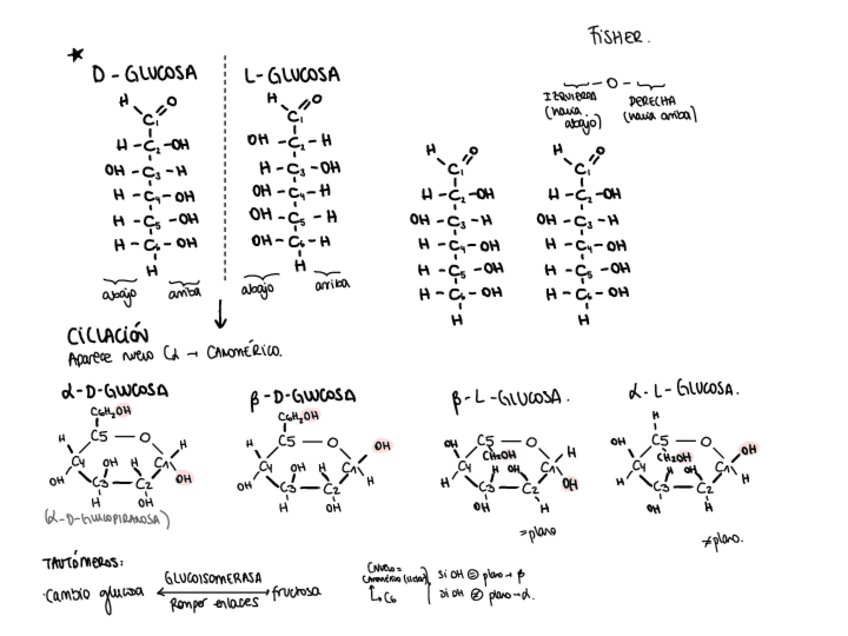 FISHER.
★
D-GLUCOSA
L-GLUCOSA
—O—
IZQUIERDA (hacia abajo)
DERECHA (hacia arriba)
H O
C1
H-C2-OH
OH-C3-H
H-C4-OH
H-C5-OH
H-C6-OH
H
abajo arriba
H O
C1
OH-C2-H
H-C3-OH
OH-C4-H
OH-C5-H
OH-C6-H
H
abajo arriba
H O
C1
H-C2-OH
OH-C3-H
H-C4-OH
H-C5-OH
H-C6-OH
H
H O
C1
H-C2-OH
OH-C3-H
H-C4-OH
H-C5-OH
H-C6-OH
H
CICLACIÓN
Aparece nuevo Cα → CANOMÉRICO.
α-D-GLUCOSA
C6H2OH
C5 — O
H H
C4 OH H C1
OH C3 — C2 OH
H OH
(α-D-GLUCOPIRANOSA)
β-D-GLUCOSA
C6H2OH
C5 — O OH
H
C4 OH H C1
OH C3 — C2 H
H OH
β-L-GLUCOSA.
OH C5 — O H
CH2OH
C4 H OH C1
H C3 — C2 OH
OH H
=plano
α-L-GLUCOSA.
H
OH C5 — O OH
CH2OH
C4 H OH C1
H C3 — C2 H
OH H
≠plano.
TAUTÓMEROS:
·Cambio glucosa GLUCOISOMERASA fructosa
Romper enlaces
C6
si OH = plano → β
si OH ≠ plano → α.